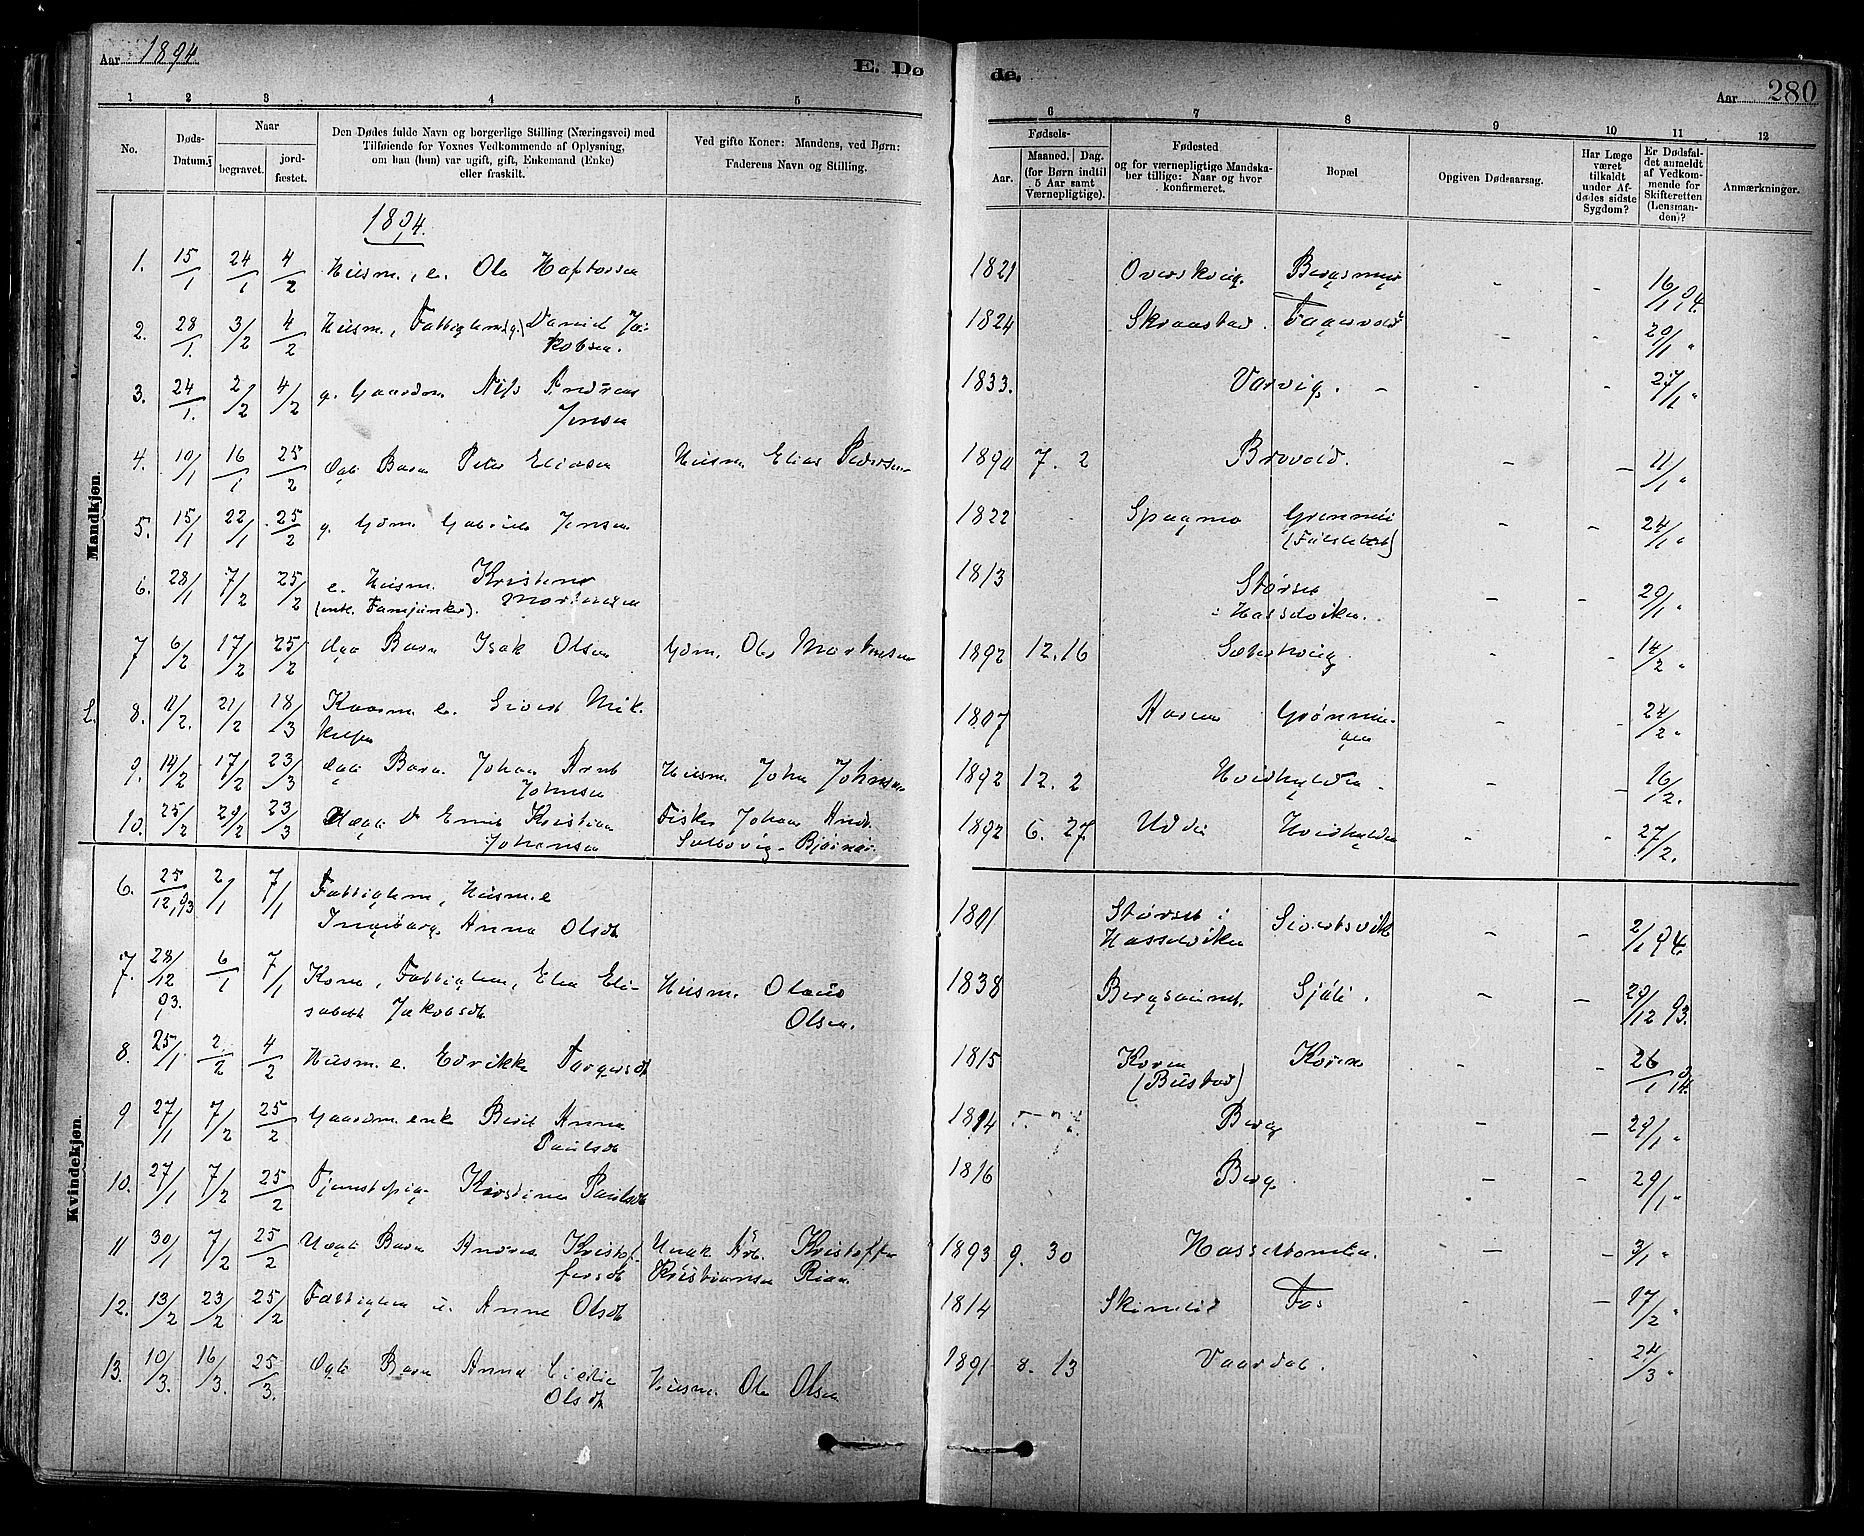 Aar 1894
E. Dø
de.
Aar 280
1 2 3 4 5 6 7 8 9 10 11 12
No.
Døds-
Datum.
Naar
begravet.
jord-
fæstet.
Den Dødes fulde Navn og borgerlige Stilling (Næringsvei) med
Tilføiende for Voxnes Vedkommende af Oplysning,
om han (hun) var ugift, gift, Enkemand (Enke)
eller fraskilt.
Ved gifte Koner: Mandens, ved Børn:
Faderens Navn og Stilling.
Fødsels-
Aar.
Maaned. Dag.
(for Børn indtil
5 Aar samt
Værnepligtige).
Fødested
og for værnepligtige Mandska-
ber tillige: Naar og hvor
konfirmeret.
Bopæl
Opgiven Dødsaarsag.
Har Læge
været
tilkaldt
under Af-
dødes sidste
Sygdom?
Er Dødsfal-
det anmeldt
af Vedkom-
mende for
Skifteretten
(Lensman-
den)?
Anmærkninger.
Mandkjøn.
1894.
1. 15/1 24/1 4/2 Husm., e. Ole Haftorsen 1821 - - 16/1 94.
2. 28/1. 3/2 4/2 Husm., Fattiglem (g.) Daniel Ja-
kobsen. 1824 Skraastad. Fagervold - - 29/1 "
3. 24/1. 2/2 4/2 g. Gaardm. Nils Andreas
Jensen 1833. Varvig. - - - 27/1 "
4. 10/1 16/1 25/2 Ægte Barn Peter Eliasen Husm. Elias Pedersen 1890 7. 2 Brovold. - - 11/1 "
5. 15/1 22/1 25/2 g. Gdm. Gabriel Jensen 1822 Spagmo - - 24/1 "
6. 28/1 7/2 25/2 e. Husm. Kristen
Mortensen
(entl. Fanejunker). 1813 Størset
i Hasselviken. - - 29/1 "
7 6/2 17/2 25/2 Ægte Barn Isak Olsen Gdm. Ole Mortensen 1892 12. 16 - - 14/2 "
L. 8. 11/2. 21/2 18/3 e. Sivert Mik-
kelsen 1807 - - 24/2 "
9. 14/2 17/2 23/3 Ægte Barn Johan Arnt
Johnsen Husm. John Johnsen 1892 12. 2 - - 16/2.
10. 25/2 29/2 23/3 Uægte B. Emil Kristian
Johansen Fisker Johan Andr.
1892 6. 27 - - 27/2.
Kvindekjøn.
6. 25/12, 93 2/1 7/1 Fattiglem, Husm. e
Ingeborg Anna Olsdt 1801 Størset i
Hasselviken Sivertsvik - - 2/1 94.
7. 28/12 93. 6/1 7/1 Kone, Fattiglem, Elen Eli-
sabeth Jakobsdt Husm. Olaus
Olsen. 1838 - - 29/12 93.
8. 25/1 2/2 4/2 Husm. e. 1815 (Bustad) - - 26/1 94.
9 27/1 7/2 25/2 Gaardm. enke Berit Anna
Paulsdt 1814 Berg - - 29/1 "
10. 27/1 7/2 25/2 Tjenestepige Kirstina Paulsdt 1816 Berg. - - 29/1 "
11 30/1 7/2 25/2 Uægte Barn Andrea Kristof-
fersdt Ungk. Arb. Kristoffer
Kristiansen Rian 1893 9. 30 - - 3/1 "
12. 13/2 23/2 25/2 Fattiglem u. Anne Olsdt 1814 - - 17/2 "
13. 10/3. 16/3. 25/3. Ægte Barn Anna Cecilie
Olsdt Husm. Ole Olsen 1891 8. 13 Vaardal. 24/3 "